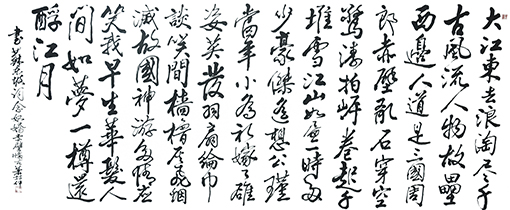 大江東去浪淘盡千
古風流人物故壘
西邊人道是三國周
郎赤壁亂石穿空
驚濤拍岸卷起千
堆雪江山如畫一時多
少豪傑遙想公瑾
當年小喬初嫁了雄
姿英發羽扇綸巾
談笑間檣櫓灰飛煙
滅故國神游多情應
笑我早生華髮人
間如夢一樽還
酹江月
書蘇軾詞念奴嬌赤壁懷古